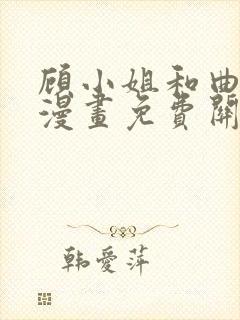 顾小姐和曲
漫畫免費開
韩愛萍